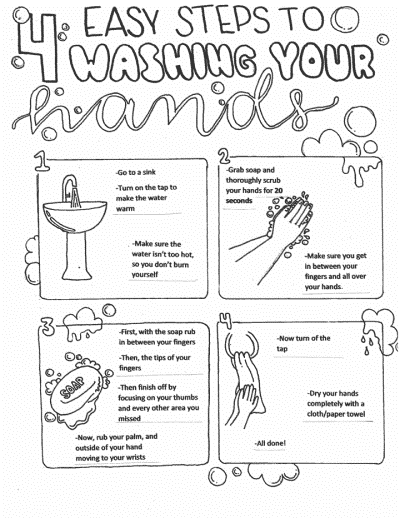 4 EASY STEPS TO
WASHING YOUR
hands
1
-Go to a sink
-Turn on the tap to
make the water
warm
-Make sure the
water isn't too hot,
so you don't burn
yourself
2
-Grab soap and
thoroughly scrub
your hands for 20
seconds
-Make sure you get
in between your
fingers and all over
your hands.
3
-First, with the soap rub
in between your fingers
-Then, the tips of your
fingers
SOAP
-Then finish off by
focusing on your thumbs
and every other area you
missed
-Now, rub your palm, and
outside of your hand
moving to your wrists
4
-Now turn of the
tap
-Dry your hands
completely with a
cloth/paper towel
-All done!